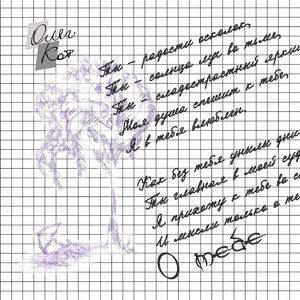 Олег
Кот
Ты – радости осколок,
Ты – солнца луч во тьме,
Ты – сладострастный ярки
Моя душа спешит к тебе,
Я в тебя влюблен.
Как без тебя унылы дни
Ты главная в моей суд
Я прихожу к тебе во с
И мысли только о те
О тебе